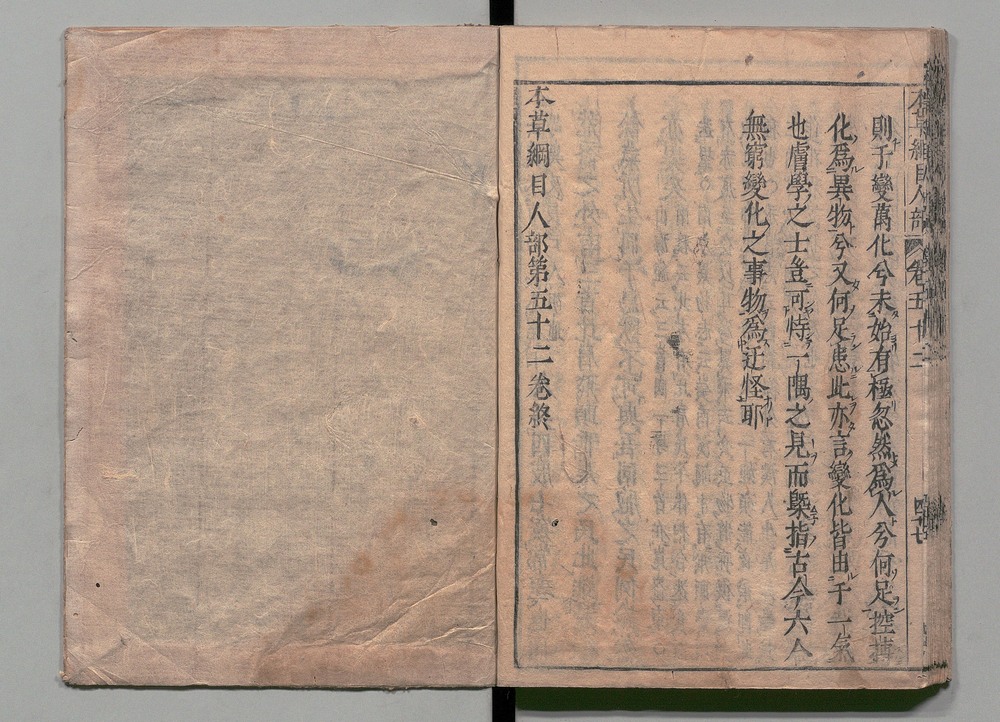 本草綱目人部 卷五十二 四十七
則千變萬化兮未始有極忽然爲人兮何足控摶
化爲異物兮又何足患此亦言變化皆由于一氣
也膚學之士豈可恃一隅之見而槩指古今六合
無窮變化之事物爲迂怪耶
本草綱目人部第五十二卷終